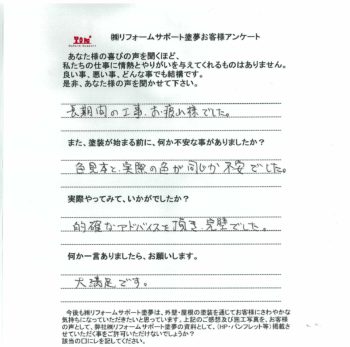 TOM
㈱リフォームサポート塗夢お客様アンケート
あなた様の喜びの声を聞くほど、
私たちの仕事に情熱とやりがいを与えてくれるものはありません。
良い事、悪い事、どんな事でも結構です。
是非、あなた様の声を聞かせて下さい。
長期間の工事、お疲れ様でした。
また、塗装が始まる前に、何か不安な事がありましたか?
色見本と、実際の色が同じか不安でした。
実際やってみて、いかがでしたか?
的確なアドバイスを頂き、完璧でした。
何か一言ありましたら、お願いします。
大満足です。
今後も㈱リフォームサポート塗夢は、外壁・屋根の塗装を通じてお客様にさわやかな
気持ちになっていただきたいと思っています。上記のご感想及び施工写真を、お客様
の声として、弊社㈱リフォームサポート塗夢の資料として、(HP・パンフレット等)掲載さ
せていただく事をご許可いただけないでしょうか?
該当の□に✓を記してください。